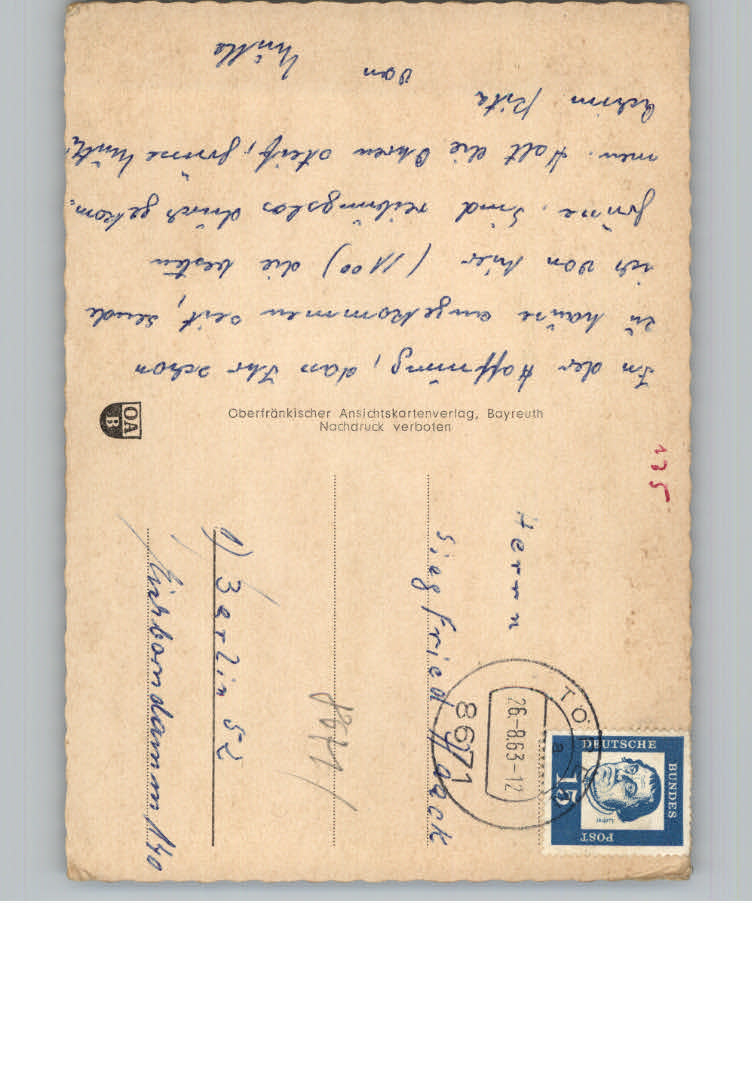 In der Hoffnung, dass Ihr schon
zu hause angekommen seit, sende
ich von hier (1100) die besten
Grüsse. Sind reibungslos durch gekom-
men. Halt die Ohren steif, grüsse
Achim Rita
von
OAB
Oberfränkischer Ansichtskartenverlag, Bayreuth
Nachdruck verboten
135
Herrn
Siegfried Haack
8671
1) Berlin 52
Kurbomdamm 140
TÖ
26.-8.63-12
a
8671
DEUTSCHE
BUNDES
POST
15
Luther